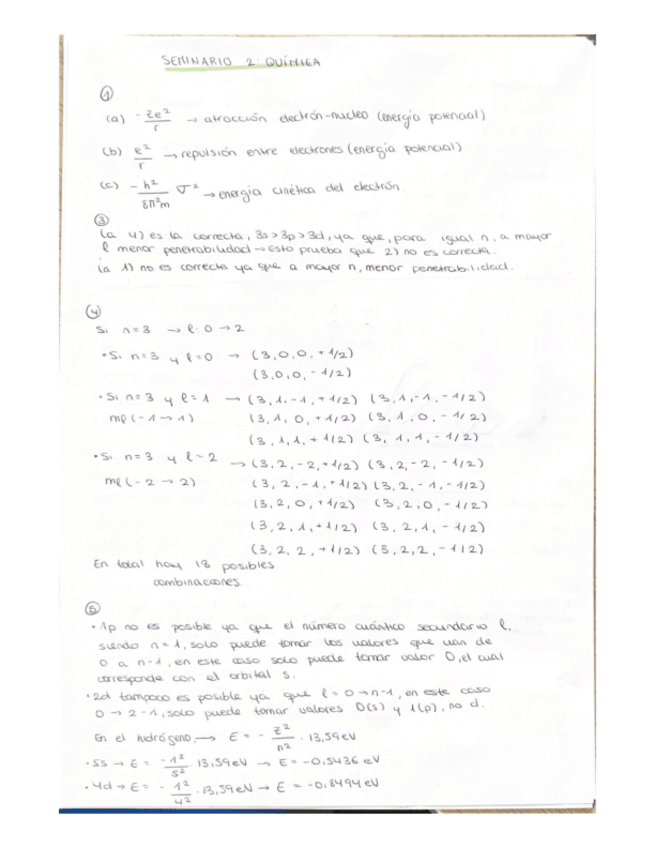 SEMINARIO 2: QUÍMICA
①
(a) - Ze²/r → atracción electrón-nucleo (energía potencial)
(b) e²/r → repulsión entre electrones (energía potencial)
(c) - h²/8π²m ∇² → energía cinética del electrón.
③
La 4) es la correcta, 3s > 3p > 3d, ya que, para igual n, a mayor
l menor penetrabilidad → Esto prueba que 2) no es correcta.
la 1) no es correcta ya que a mayor n, menor penetrabilidad.
④
Si n=3 → l: 0 → 2
• Si n=3 y l=0 → (3,0,0,+1/2)
(3,0,0,-1/2)
• Si n=3 y l=1 → (3,1,-1,+1/2) (3,1,-1,-1/2)
ml (-1 → 1) (3,1,0,+1/2) (3,1,0,-1/2)
(3,1,1,+1/2) (3,1,1,-1/2)
• Si n=3 y l=2 → (3,2,-2,+1/2) (3,2,-2,-1/2)
ml (-2 → 2) (3,2,-1,+1/2) (3,2,-1,-1/2)
(3,2,0,+1/2) (3,2,0,-1/2)
(3,2,1,+1/2) (3,2,1,-1/2)
(3,2,2,+1/2) (3,2,2,-1/2)
En total hay 18 posibles
combinaciones.
⑤
• 1p no es posible ya que el número cuántico secundario l,
siendo n=1, solo puede tomar los valores que van de
0 a n-1, en este caso solo puede tomar valor 0, el cual
corresponde con el orbital s.
• 2d tampoco es posible ya que l=0→n-1, en este caso
0 → 2-1, solo puede tomar valores 0(s) y 1(p), no d.
En el hidrógeno, → E = - Z²/n² · 13,59eV
• 5s → E = - 1²/5² · 13,59eV → E = -0,5436 eV
• 4d → E = - 1²/4² · 13,59eV → E = -0,8494 eV